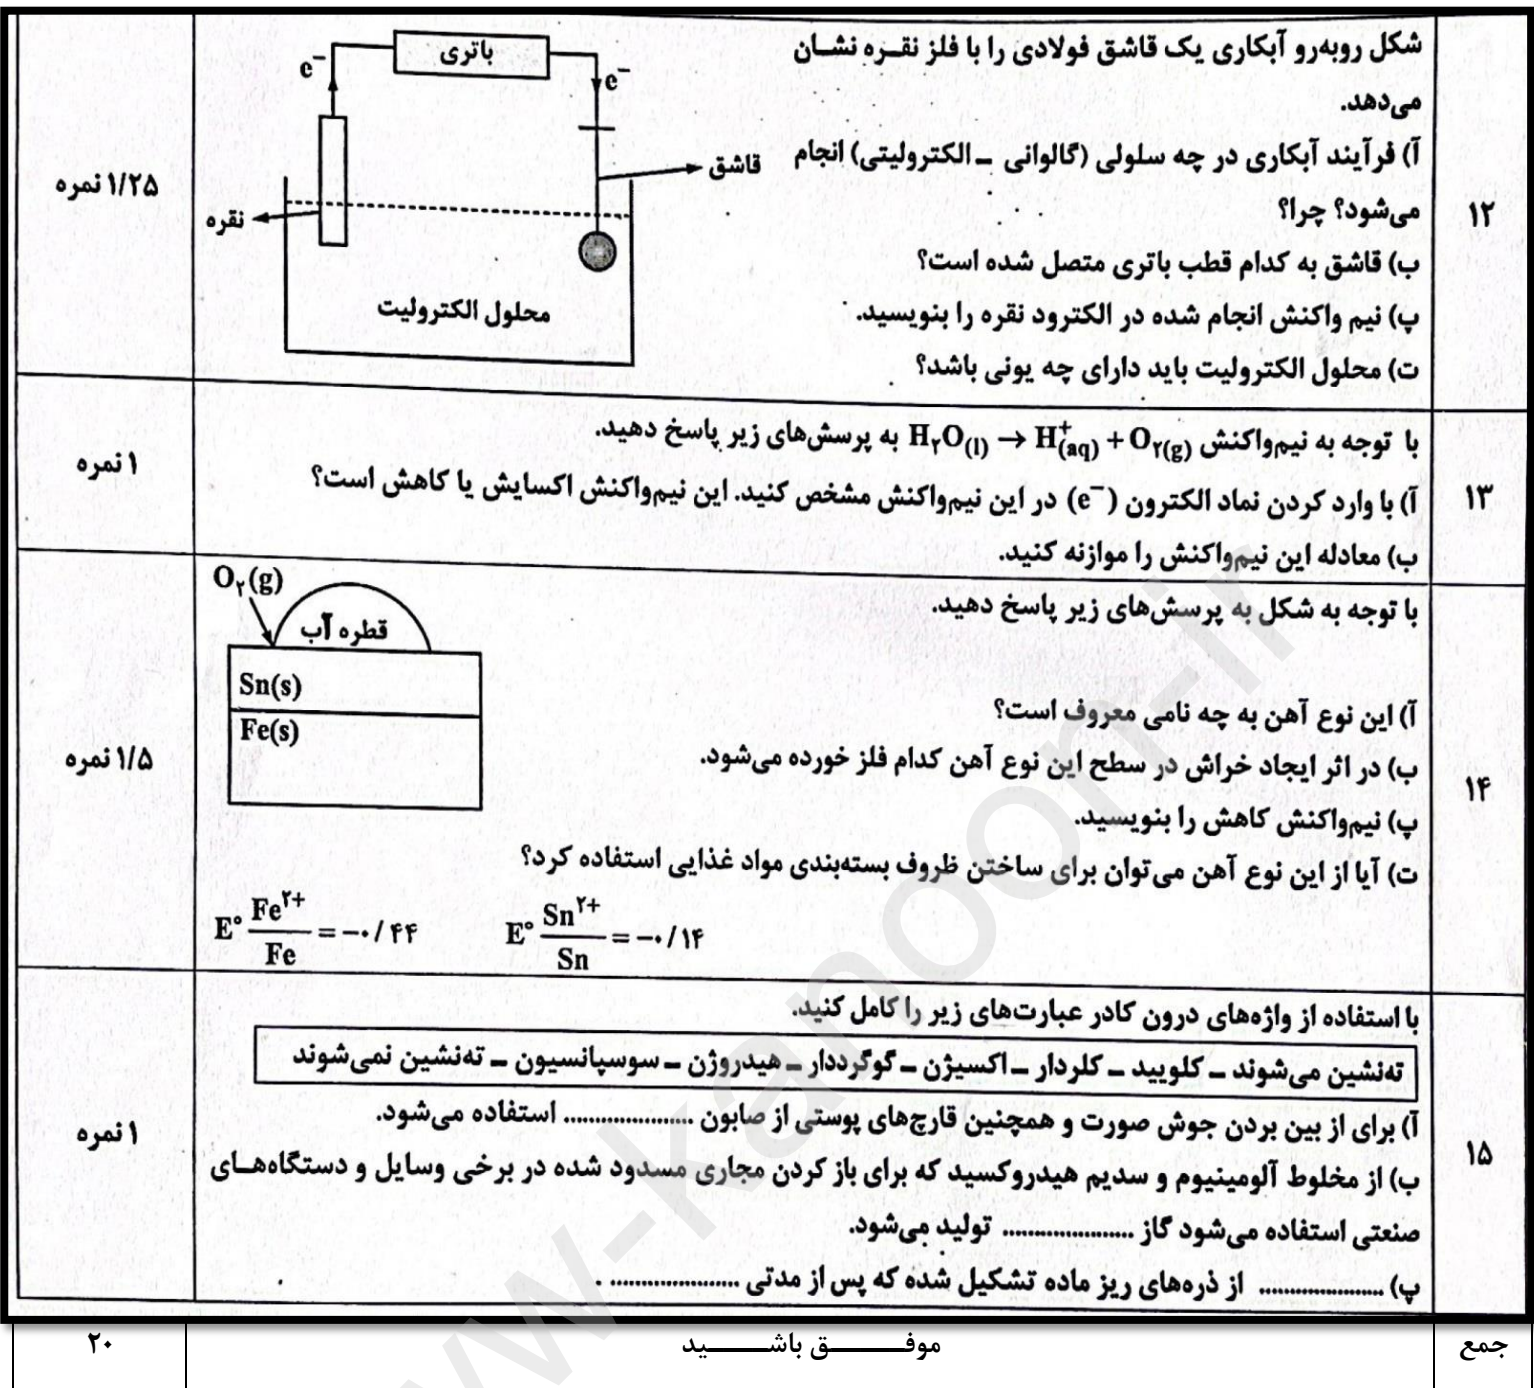 ۱۲
شکل روبه‌رو آبکاری یک قاشق فولادی را با فلز نقـره نشـان
می‌دهد.
آ) فرآیند آبکاری در چه سلولی (گالوانی ـ الکترولیتی) انجام
می‌شود؟ چرا؟
ب) قاشق به کدام قطب باتری متصل شده است؟
پ) نیم واکنش انجام شده در الکترود نقره را بنویسید.
ت) محلول الکترولیت باید دارای چه یونی باشد؟
باتری
e⁻
e⁻
قاشق
نقره
محلول الکترولیت
۱/۲۵ نمره
۱۳
با توجه به نیم‌واکنش H₂O(l) → H⁺(aq) + O₂(g) به پرسش‌های زیر پاسخ دهید.
آ) با وارد کردن نماد الکترون (e⁻) در این نیم‌واکنش مشخص کنید. این نیم‌واکنش اکسایش یا کاهش است؟
ب) معادله این نیم‌واکنش را موازنه کنید.
۱ نمره
۱۴
با توجه به شکل به پرسش‌های زیر پاسخ دهید.
آ) این نوع آهن به چه نامی معروف است؟
ب) در اثر ایجاد خراش در سطح این نوع آهن کدام فلز خورده می‌شود.
پ) نیم‌واکنش کاهش را بنویسید.
ت) آیا از این نوع آهن می‌توان برای ساختن ظروف بسته‌بندی مواد غذایی استفاده کرد؟
E° Fe²⁺/Fe = −۰/۴۴ E° Sn²⁺/Sn = −۰/۱۴
O₂(g)
قطره آب
Sn(s)
Fe(s)
۱/۵ نمره
۱۵
با استفاده از واژه‌های درون کادر عبارت‌های زیر را کامل کنید.
ته‌نشین می‌شوند ـ کلویید ـ کلردار ـ اکسیژن ـ گوگرددار ـ هیدروژن ـ سوسپانسیون ـ ته‌نشین نمی‌شوند
آ) برای از بین بردن جوش صورت و همچنین قارچ‌های پوستی از صابون .................... استفاده می‌شود.
ب) از مخلوط آلومینیوم و سدیم هیدروکسید که برای باز کردن مجاری مسدود شده در برخی وسایل و دستگاه‌هـای
صنعتی استفاده می‌شود گاز .................... تولید می‌شود.
پ) .................... از ذره‌های ریز ماده تشکیل شده که پس از مدتی .................... .
۱ نمره
جمع
موفـــــــق باشـــــــید
۲۰
w-kanoon-ir